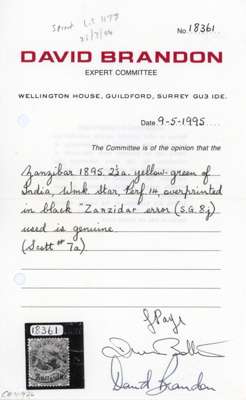 Sprint Lot 1177
No. 18361
DAVID BRANDON
EXPERT COMMITTEE
WELLINGTON HOUSE, GUILDFORD, SURREY GU3 IDE.
Date 9-5-1995
The Committee is of the opinion that the
Zanzibar 1895. 2½a. yellow-green of
India, Wmk Star, Perf 14, overprinted
in black "Zanzidar error (S.G. 8j)
used is genuine
(Scott # 7a)
J Page
18361
David Brandon